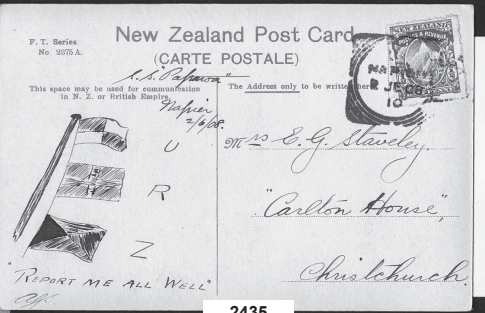 F. T. Series
No. 2375 A.
New Zealand Post Card
(CARTE POSTALE)
S.S. Paparoa"
This space may be used for communication
in N. Z. or British Empire.
The Address only to be written here
Napier
2/6/08.
NEW ZEALAND
POSTAGE & REVENUE
2 JE 08
10
U
R
Z
"REPORT ME ALL WELL"
Mrs E. G. Staveley,
"Carlton House",
Christchurch.
2435